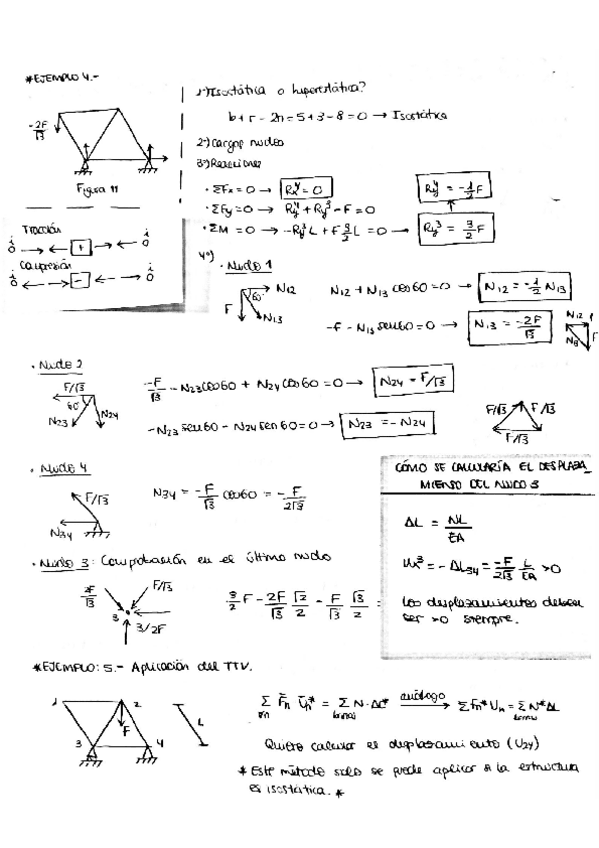 *EJEMPLO 4.-
-2F/√3
Figura 11
Tracción
+
Compresión
-
1º) Isostática o hiperestática?
b+r-2n=5+3-8=0 → Isostática
2º) Cargas nudos
3º) Reacciones
· ΣFx=0 → Rx⁴=0
Ry⁴ = -1/2 F
· ΣFy=0 → Ry⁴+Ry³-F=0
· ΣM=0 → -Ry³L+F 3/2 L=0 → Ry³ = 3/2 F
4º)
· Nudo 1
N12
60
F
N13
N12+N13 cos60=0 → N12=-1/2 N13
-F-N13 sen60=0 → N13=-2F/√3
N12
F
· Nudo 2
F/√3
60
N23
N24
-F/√3 - N23 cos60 + N24 cos60=0 → N24=F/√3
-N23 sen60 - N24 sen60=0 → N23=-N24
F/√3
F/√3
F/√3
· Nudo 4
F/√3
N34
N34 = -F/√3 cos60 = -F/2√3
CÓMO SE CALCULARÍA EL DESPLAZA_
MIENTO DEL NUDO 3
ΔL = NL/EA
Ux³=-ΔL34=-F/2√3 L/EA >0
Los desplazamientos deben
ser >0 siempre.
· Nudo 3: Comprobación en el último nudo
2F/√3
F/√3
3
3/2F
3/2 F - 2F/√3 √2/2 - F/√3 √3/2 =
*EJEMPLO: 5.- Aplicación del TTV.
1
2
F
3
4
L
Σ F̄n Ūn* = Σ N·ΔL* análogo → Σ Fn* Un = Σ N* ΔL
Quiero calcular el desplazamiento (U2y)
* Este método solo se puede aplicar si la estructura
es isostática. *